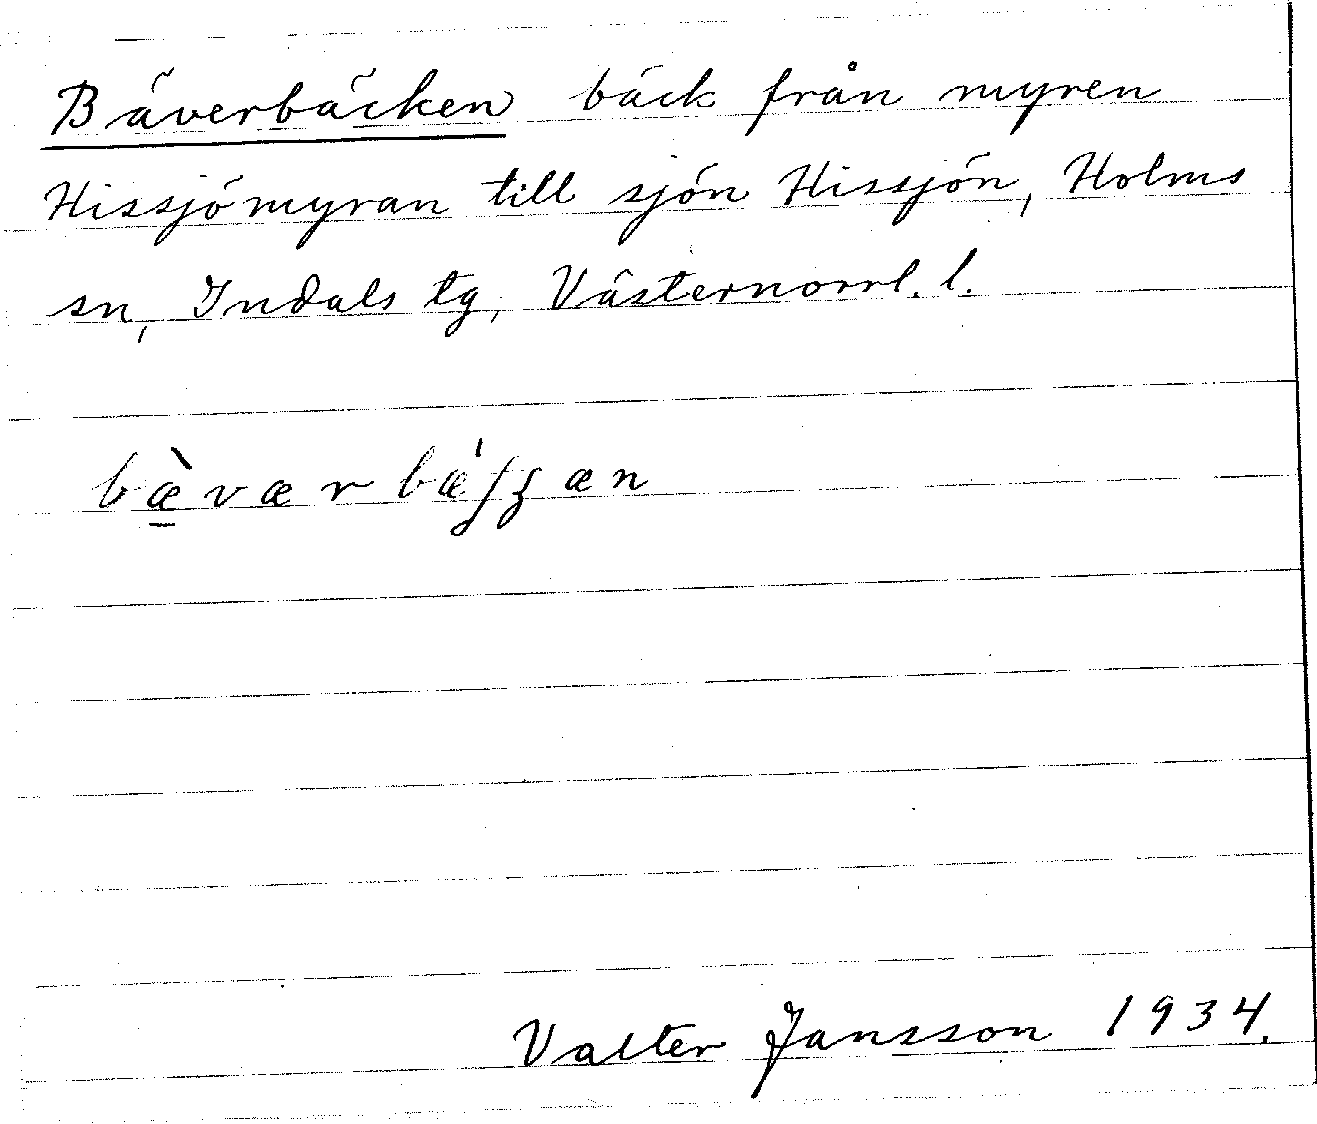 Bäverbäcken bäck från myren
Hissjömyran till sjön Hissjön, Holms
sn, Indals tg, Västernorrl. l.
bæ̀værbæ̍ʃʒæn
Valter Jansson 1934.